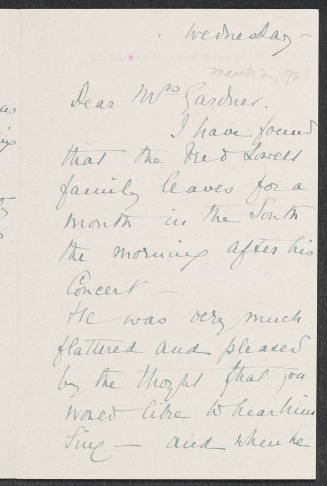 Wednesday -
March 2, 192
Dear Mrs Gardner.
I have found
that the Fred Lowell
family leaves for a
month in the South
the morning after his
Concert -
He was very much
flattered and pleased
by the thoght that you
would like to hear him
Sing - and when he